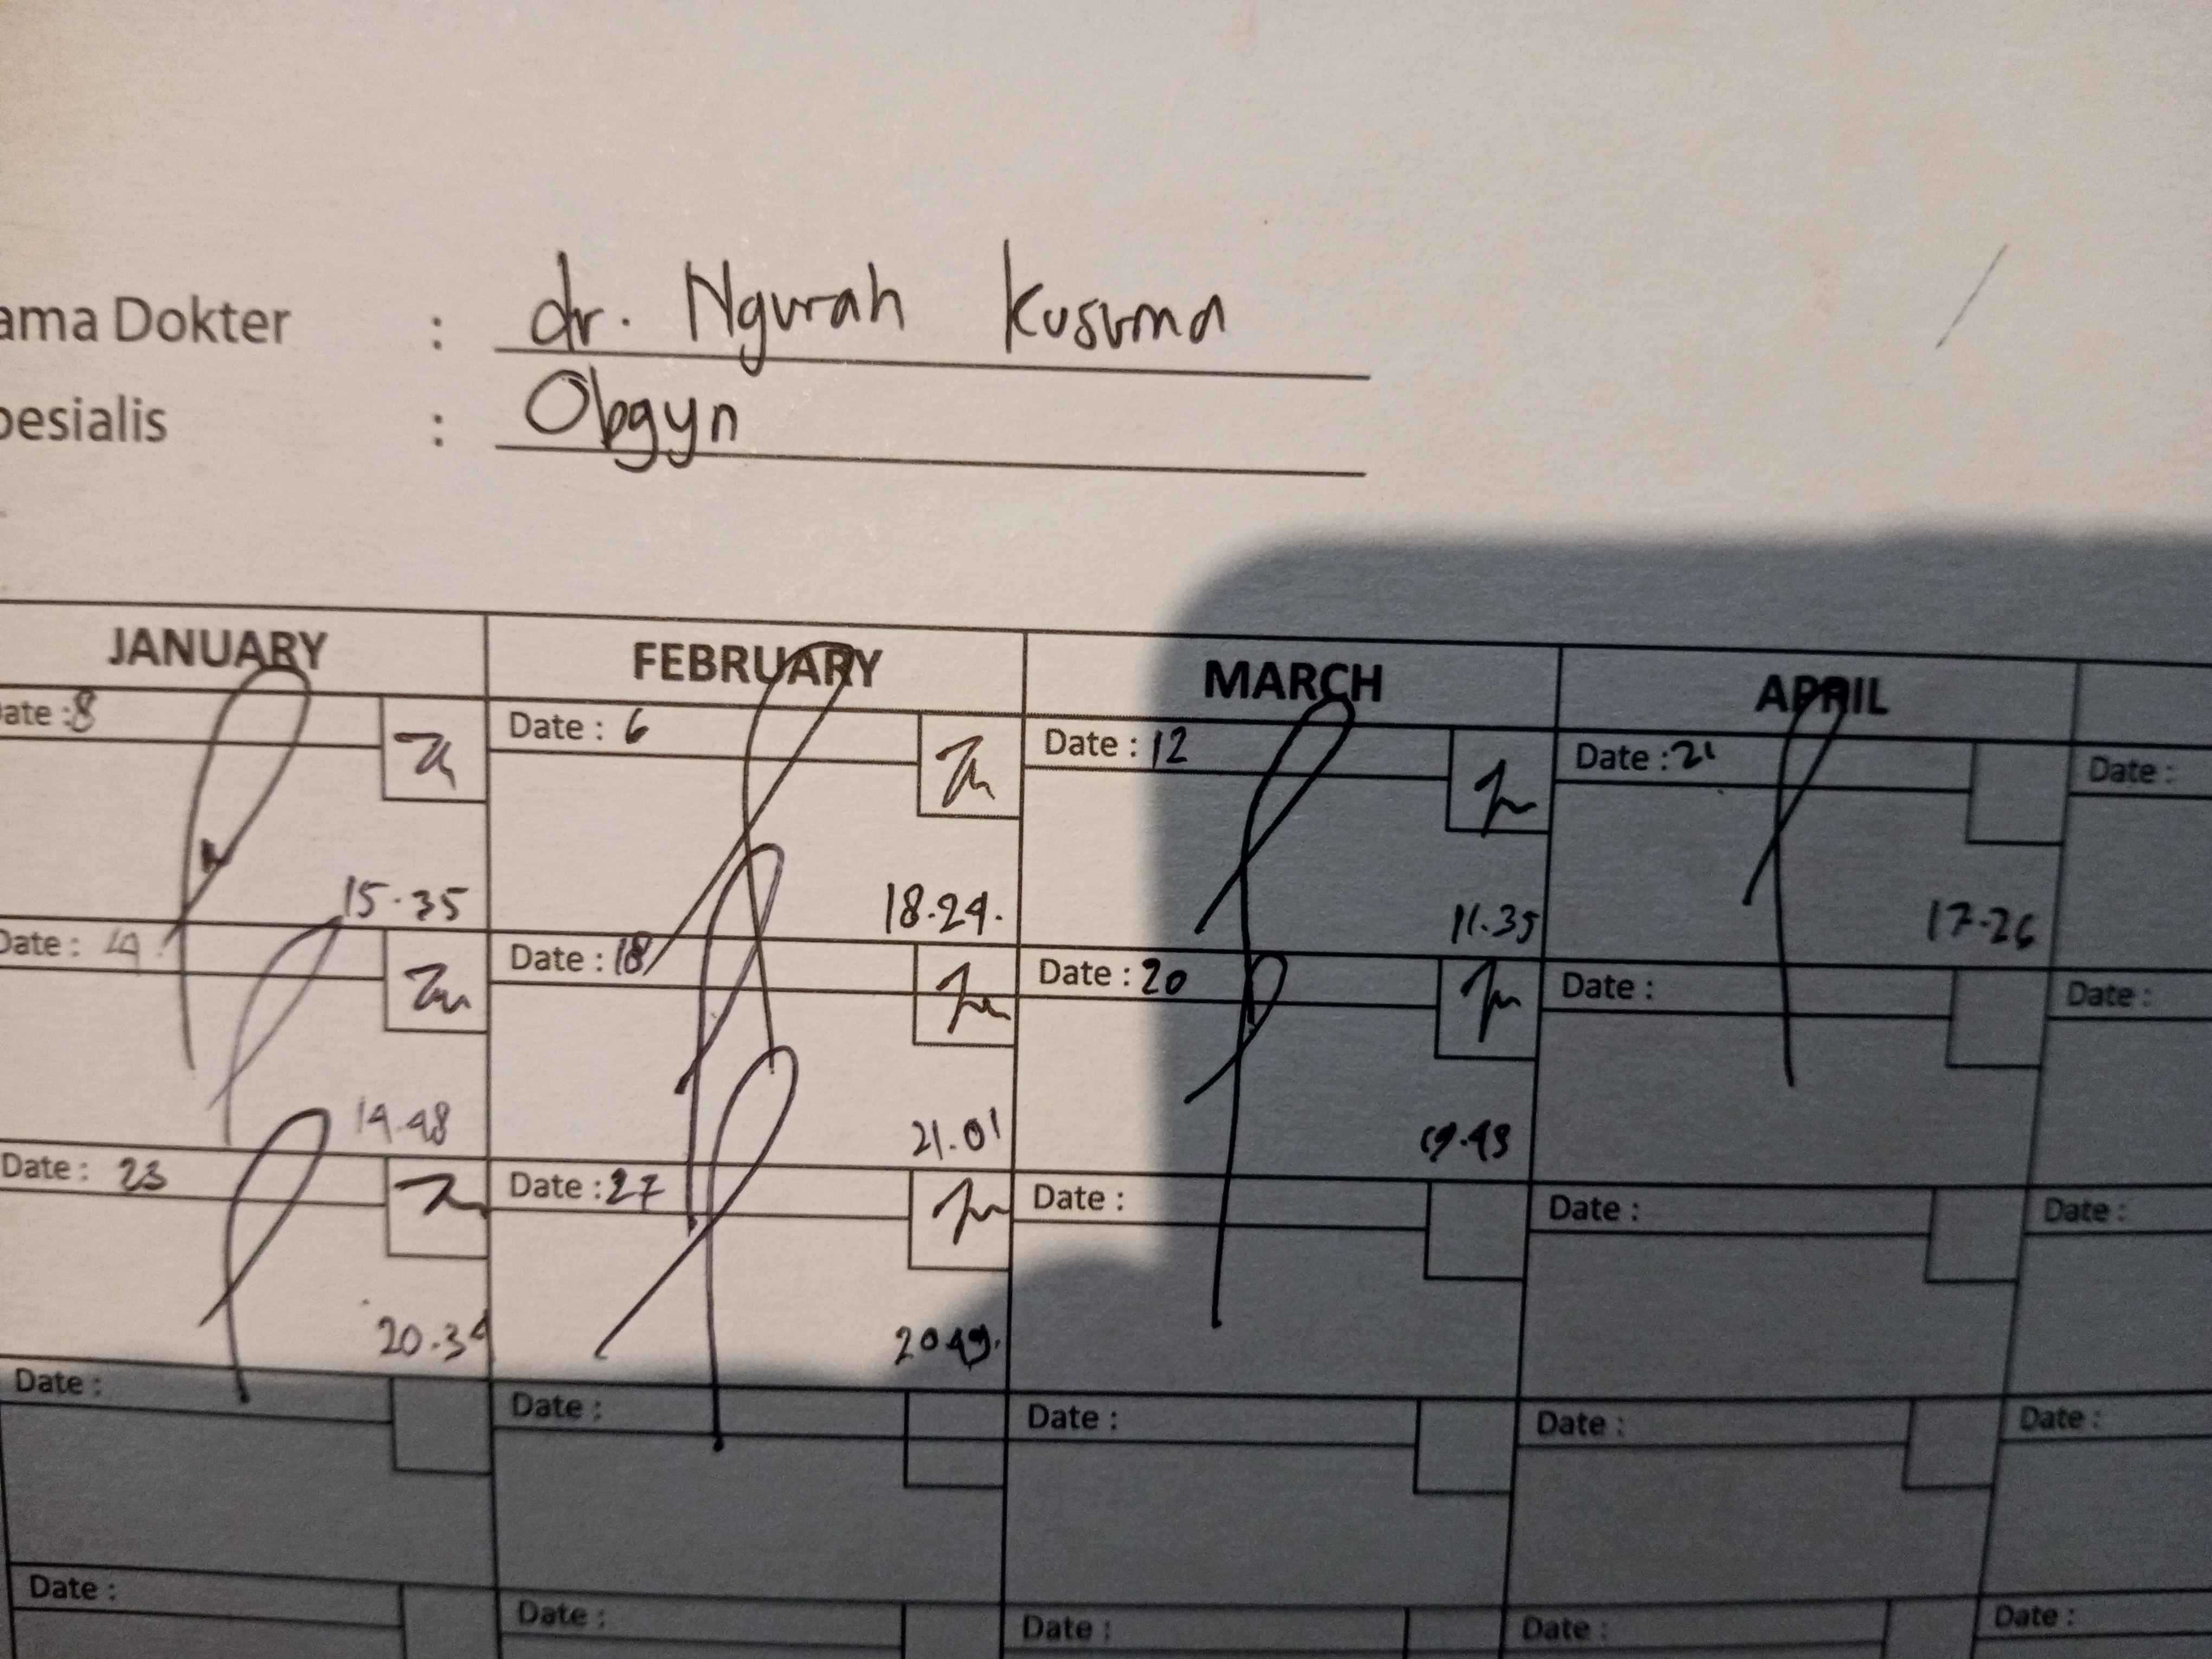 ama Dokter : dr. Ngurah Kusuma
pesialis : Obgyn
JANUARY FEBRUARY MARCH APRIL
ate : 8 Date : 6 Date : 12 Date : 21 Date :
15.35 18.29. 11.35 17.26
Date : 19 Date : 18 Date : 20 Date : Date :
19.48 21.01 19.49
Date : 23 Date : 27 Date : Date : Date :
20.39 20.49.
Date : Date : Date : Date : Date :
Date : Date : Date : Date : Date :